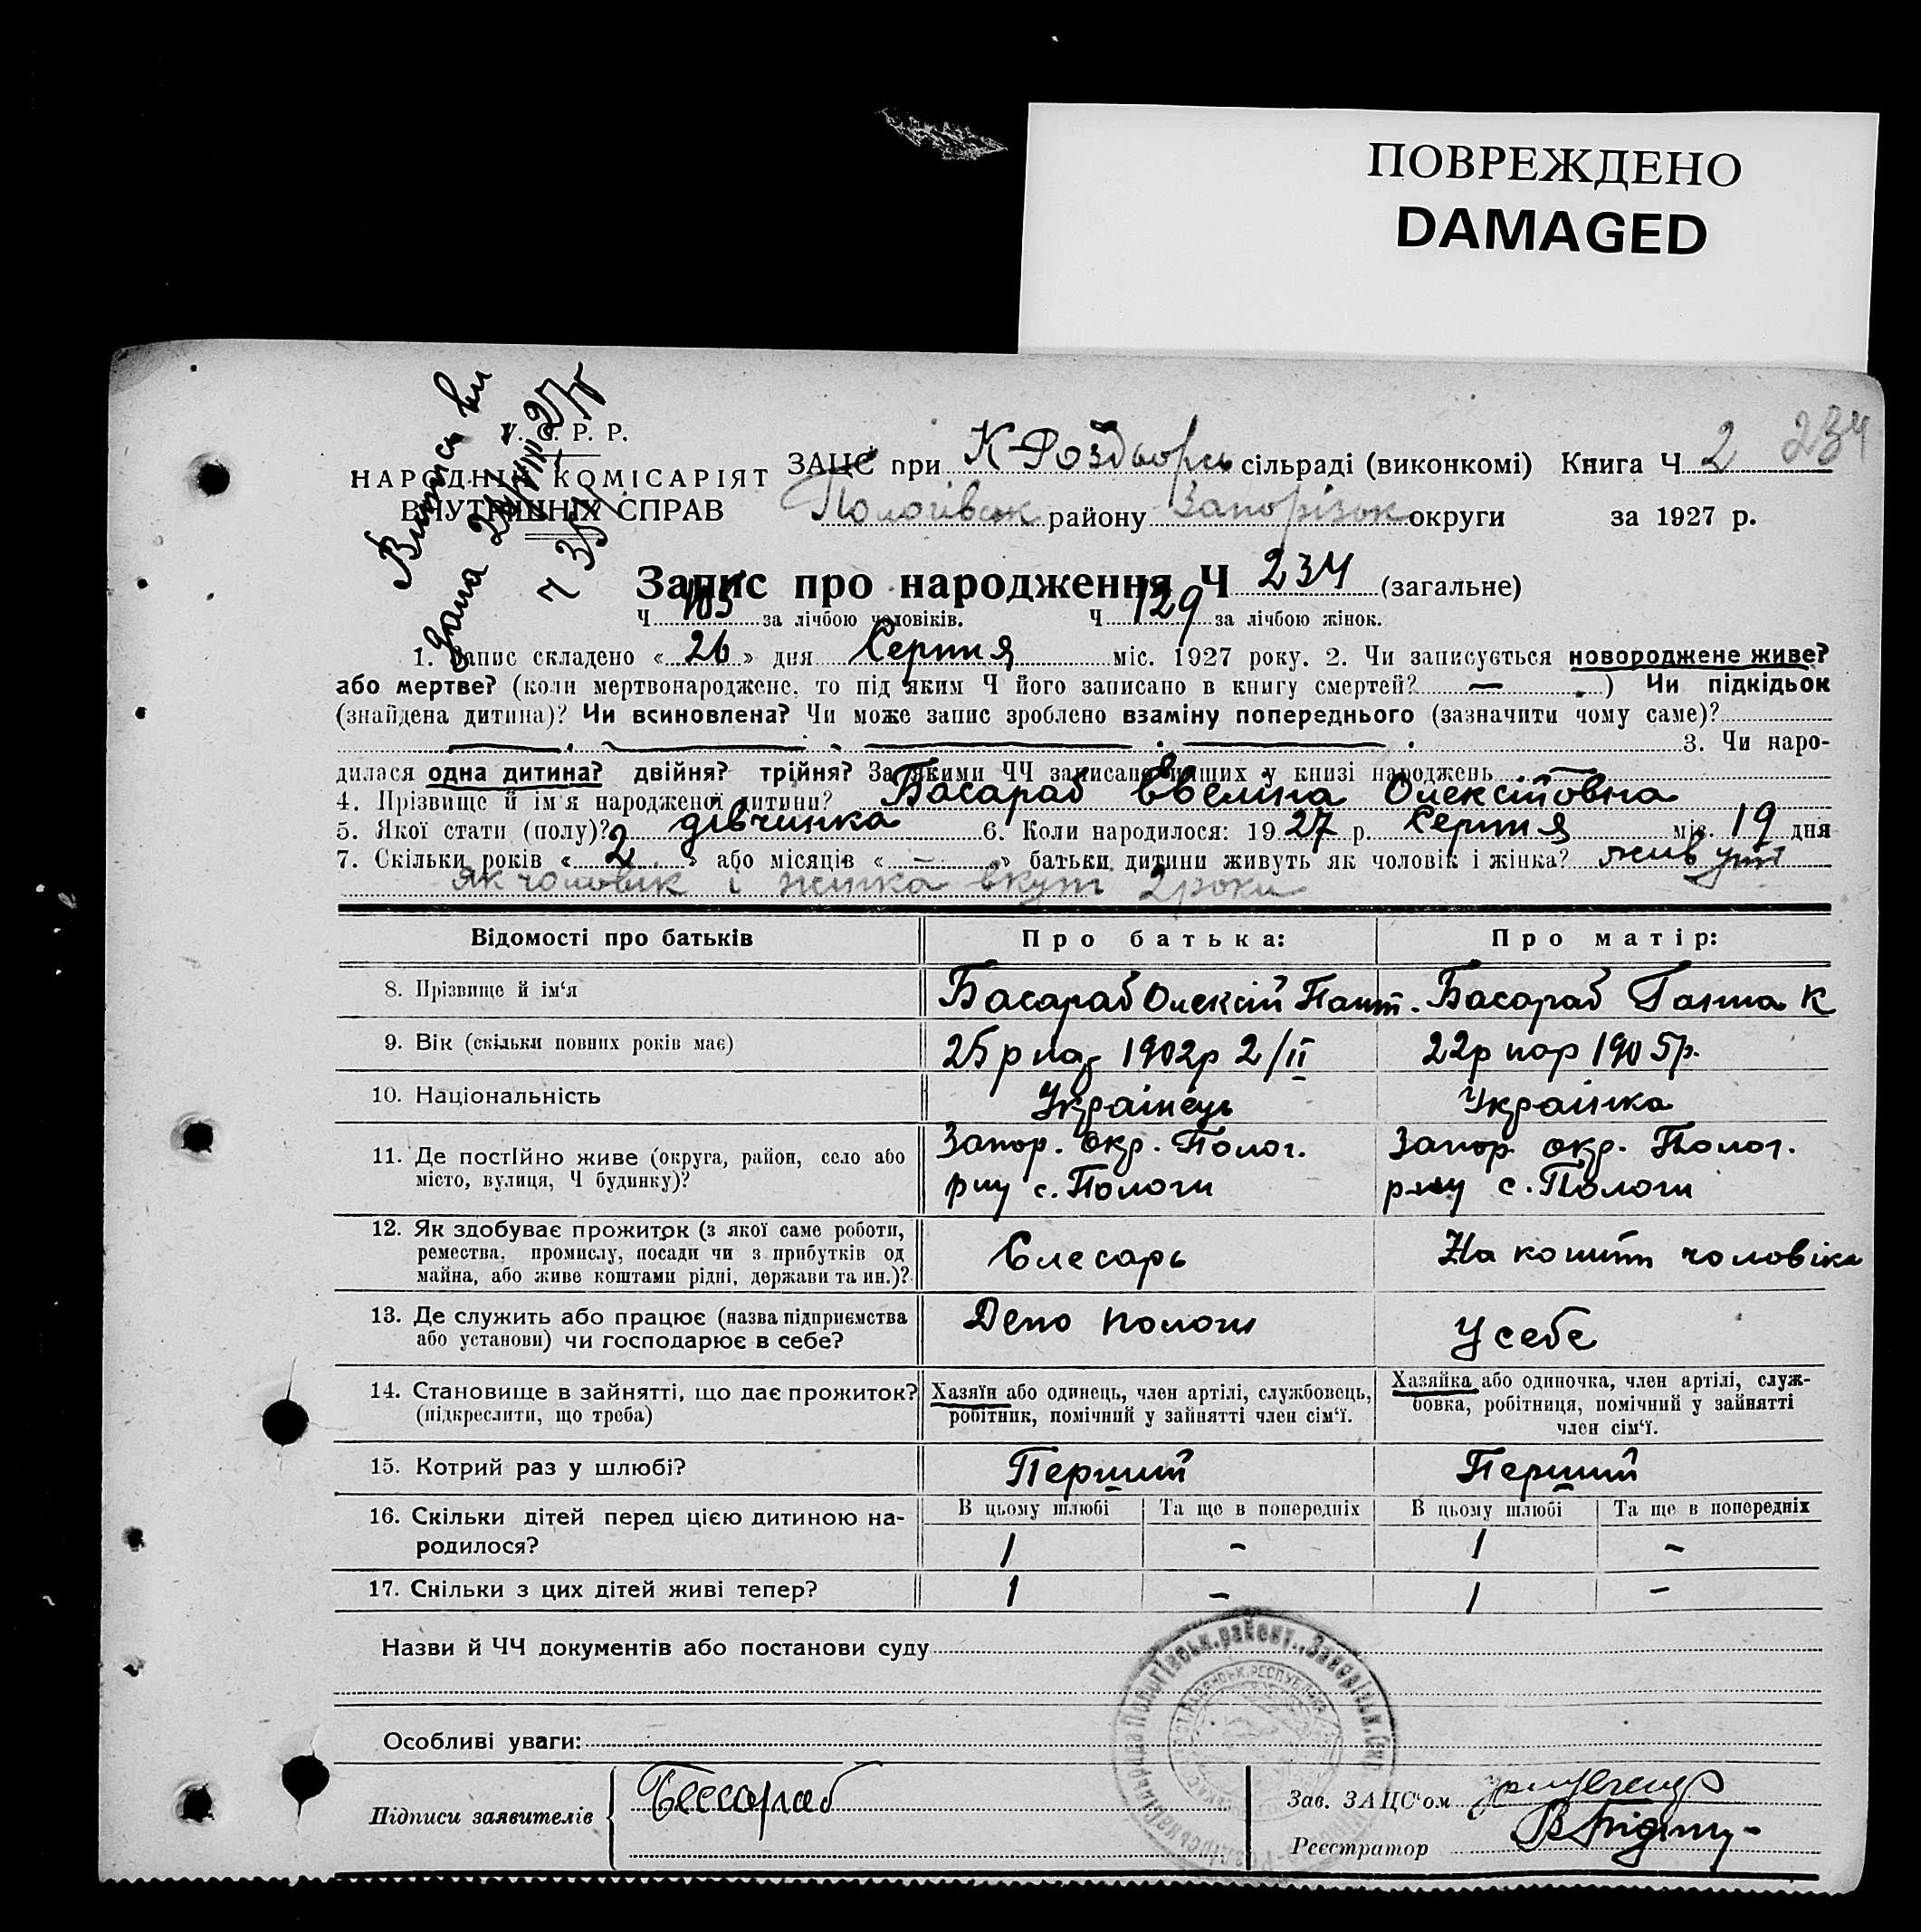 ПОВРЕЖДЕНО
DAMAGED
Випись ви
дана
У. С. Р. Р.
НАРОДНІЙ КОМІСАРІЯТ
ВНУТРІШНІХ СПРАВ
ЗАЦС при К-Роздорсь сільраді (виконкомі) Книга Ч. 2 234
Пологівськ району Запорізьк округи за 1927 р.
Запис про народження Ч 234 (загальне)
Ч. 105 за лічбою чоловіків. Ч. 129 за лічбою жінок.
1. Запис складено « 26 » дня Серпня міс. 1927 року. 2. Чи записується новороджене живе?
або мертве? (коли мертвонароджене, то під яким Ч його записано в книгу смертей? — ) Чи підкідьок
(знайдена дитина)? Чи всиновлена? Чи може запис зроблено взаміну попереднього (зазначити чому саме)?
3. Чи наро-
дилася одна дитина? двійня? трійня? За якими ЧЧ записано инших у книзі народжень —
4. Прізвище й ім'я народженої дитини? Басараб Евеліна Олексіївна
5. Якої статі (полу)? дівчинка 6. Коли народилося: 1927 р. Серпня міс. 19 дня
7. Скільки років « 2 » або місяців « — » батьки дитини живуть як чоловік і жінка? живуть
як чоловік і жінка вкупі 2 роки
Відомості про батьків Про батька: Про матір:
8. Прізвище й ім'я Басараб Олексій Пант. Басараб Ганна К
9. Вік (скільки повних років має) 25 р нар 1902р 2/II 22р нар 1905р.
10. Національність Українець Українка
11. Де постійно живе (округа, район, село або Запор. окр. Полог. Запор окр. Полог.
місто, вулиця, Ч будинку)? р-ну с. Пологи р-ну с. Пологи
12. Як здобуває прожиток (з якої саме роботи,
ремества, промислу, посади чи з прибутків од Слесарь На кошти чоловіка
майна, або живе коштами рідні, держави та ин.)?
13. Де служить або працює (назва підприємства Депо Пологи У себе
або установи) чи господарює в себе?
14. Становище в зайнятті, що дає прожиток? Хазяїн або одинець, член артілі, службовець, Хазяйка або одиночка, член артілі, служ-
(підкреслити, що треба) робітник, помічний у зайнятті член сім'ї. бовка, робітниця, помічний у зайнятті
член сім'ї.
15. Котрий раз у шлюбі? Перший Перший
16. Скільки дітей перед цією дитиною на- В цьому шлюбі Та ще в попередніх В цьому шлюбі Та ще в попередніх
родилося? 1 - 1 -
17. Скільки з цих дітей живі тепер? 1 - 1 -
Назви й ЧЧ документів або постанови суду
Особливі уваги:
Підписи заявителів Бесараб Зав. ЗАЦС'ом
Реєстратор